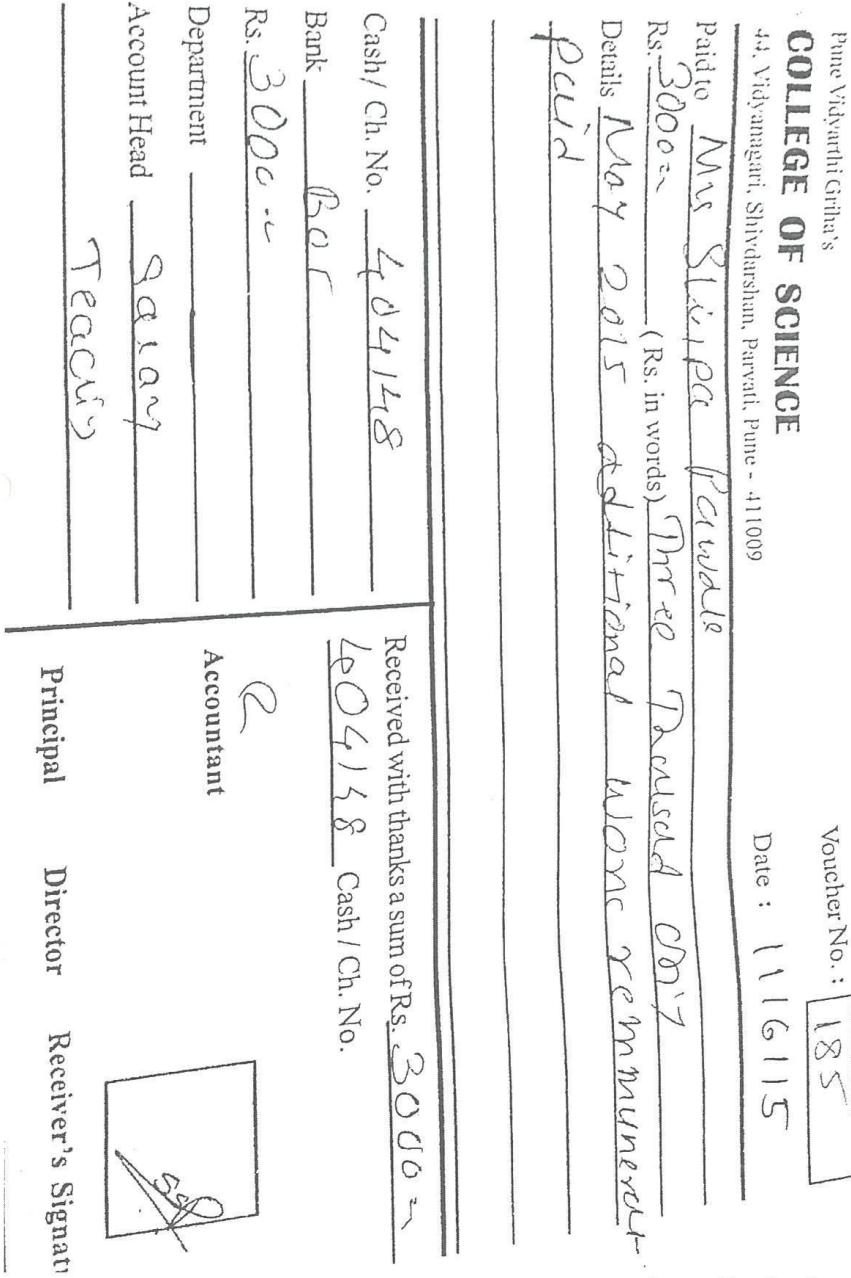 Pune Vidyarthi Griha's
COLLEGE OF SCIENCE
44, Vidyanagari, Shivdarshan, Parvati, Pune - 411009
Voucher No. : 185
Date : 11/6/15
Paid to Mrs Shilpa Pawale
Rs. 3000 = (Rs. in words) Three Thousand only
Details May 2015 additional work remmunerat
paid
Cash / Ch. No. 404148
Bank BOI
Rs. 3000 =
Department
Account Head Salary
Teaching
Received with thanks a sum of Rs. 3000 =
404148 Cash / Ch. No.
Accountant
Principal Director Receiver's Signatu